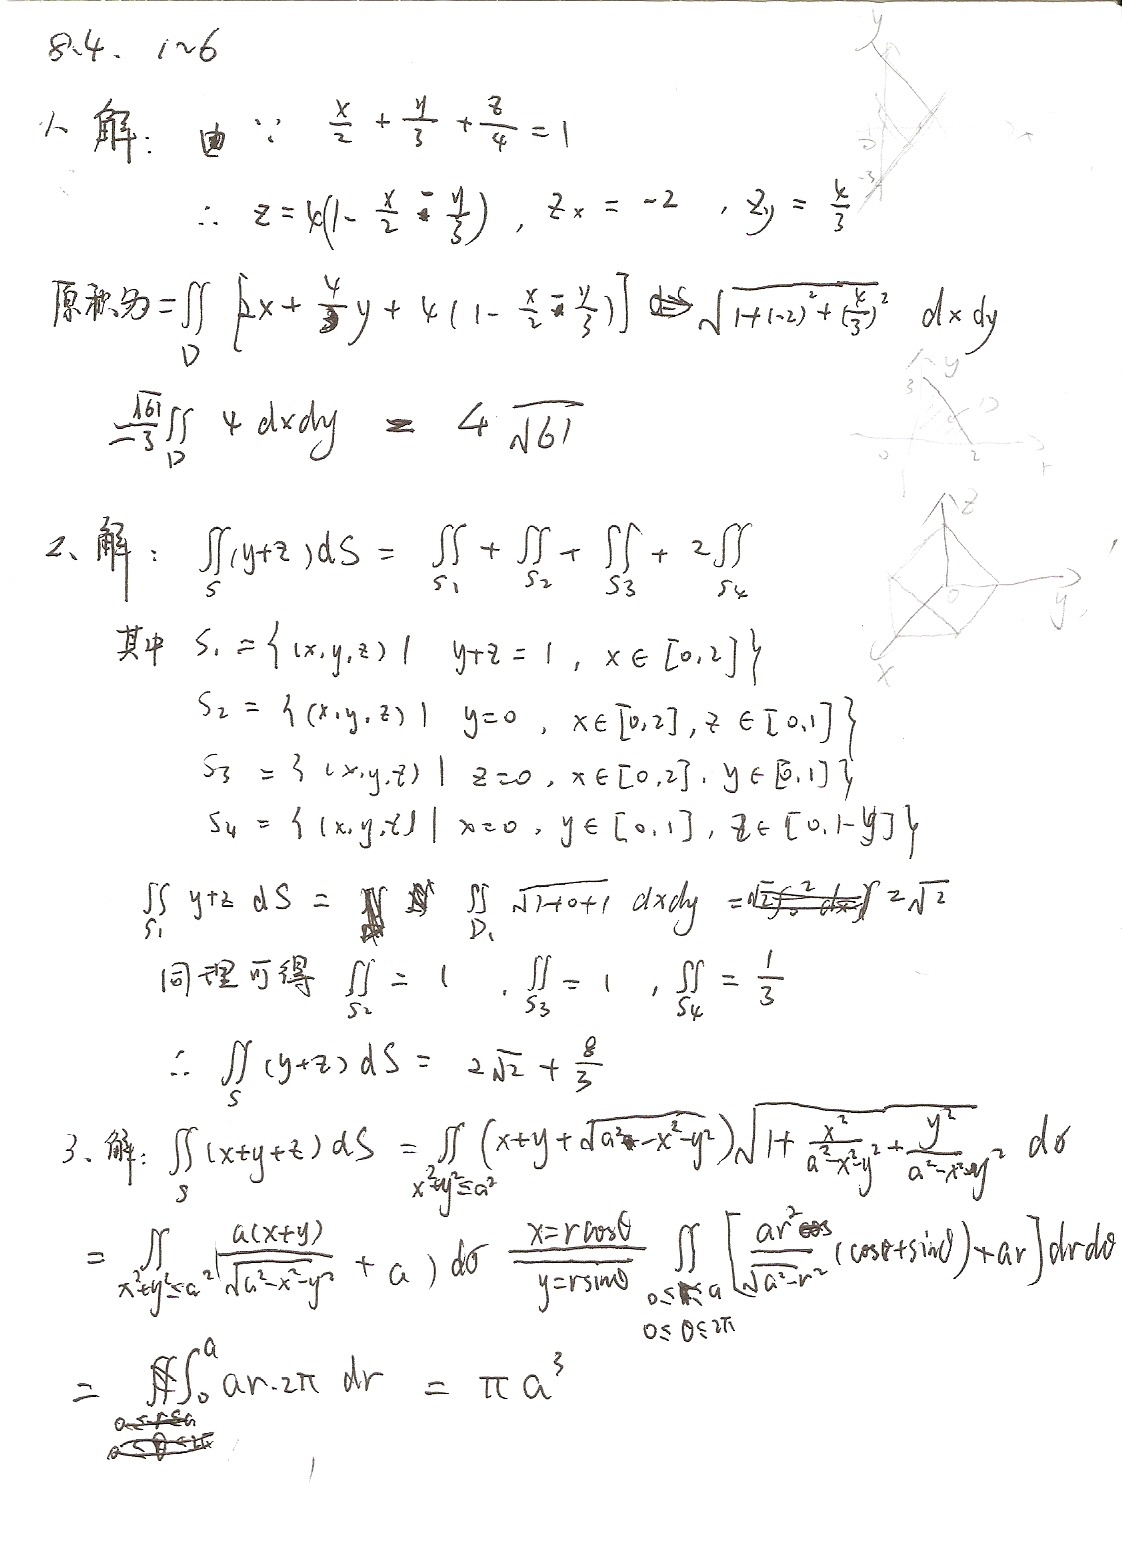 8.4. 1~6
1、解: ∵ x/2 + y/3 + z/4 = 1
∴ z = 4(1 - x/2 - y/3), Zx = -2, Zy = 4/3
原积分 = ∬_D [2x + 4/3 y + 4(1 - x/2 - y/3)] √(1+(-2)²+(4/3)²) dxdy
= √61/3 ∬_D 4 dxdy = 4√61
2、解: ∬_S (y+z)dS = ∬_S1 + ∬_S2 + ∬_S3 + 2∬_S4
其中 S1 = {(x,y,z) | y+z=1, x∈[0,2]}
S2 = {(x,y,z) | y=0, x∈[0,2], z∈[0,1]}
S3 = {(x,y,z) | z=0, x∈[0,2], y∈[0,1]}
S4 = {(x,y,z) | x=0, y∈[0,1], z∈[0,1-y]}
∬_S1 y+z dS = ∬_D1 √(1+0+1) dxdy = 2√2
同理可得 ∬_S2 = 1, ∬_S3 = 1, ∬_S4 = 1/3
∴ ∬_S (y+z)dS = 2√2 + 8/3
3、解: ∬_S (x+y+z)dS = ∬_{x²+y²≤a²} (x+y+√(a²-x²-y²)) √(1 + x²/(a²-x²-y²) + y²/(a²-x²-y²)) dσ
= ∬_{x²+y²≤a²} (a(x+y)/√(a²-x²-y²) + a) dσ x=rcosθ y=rsinθ ∬_{0≤r≤a 0≤θ≤2π} [ar²/√(a²-r²) (cosθ+sinθ)+ar] drdθ
= ∫₀ᵃ ar·2π dr = πa³
y
-3
y
3
D
0
2
x
z
0
y
x